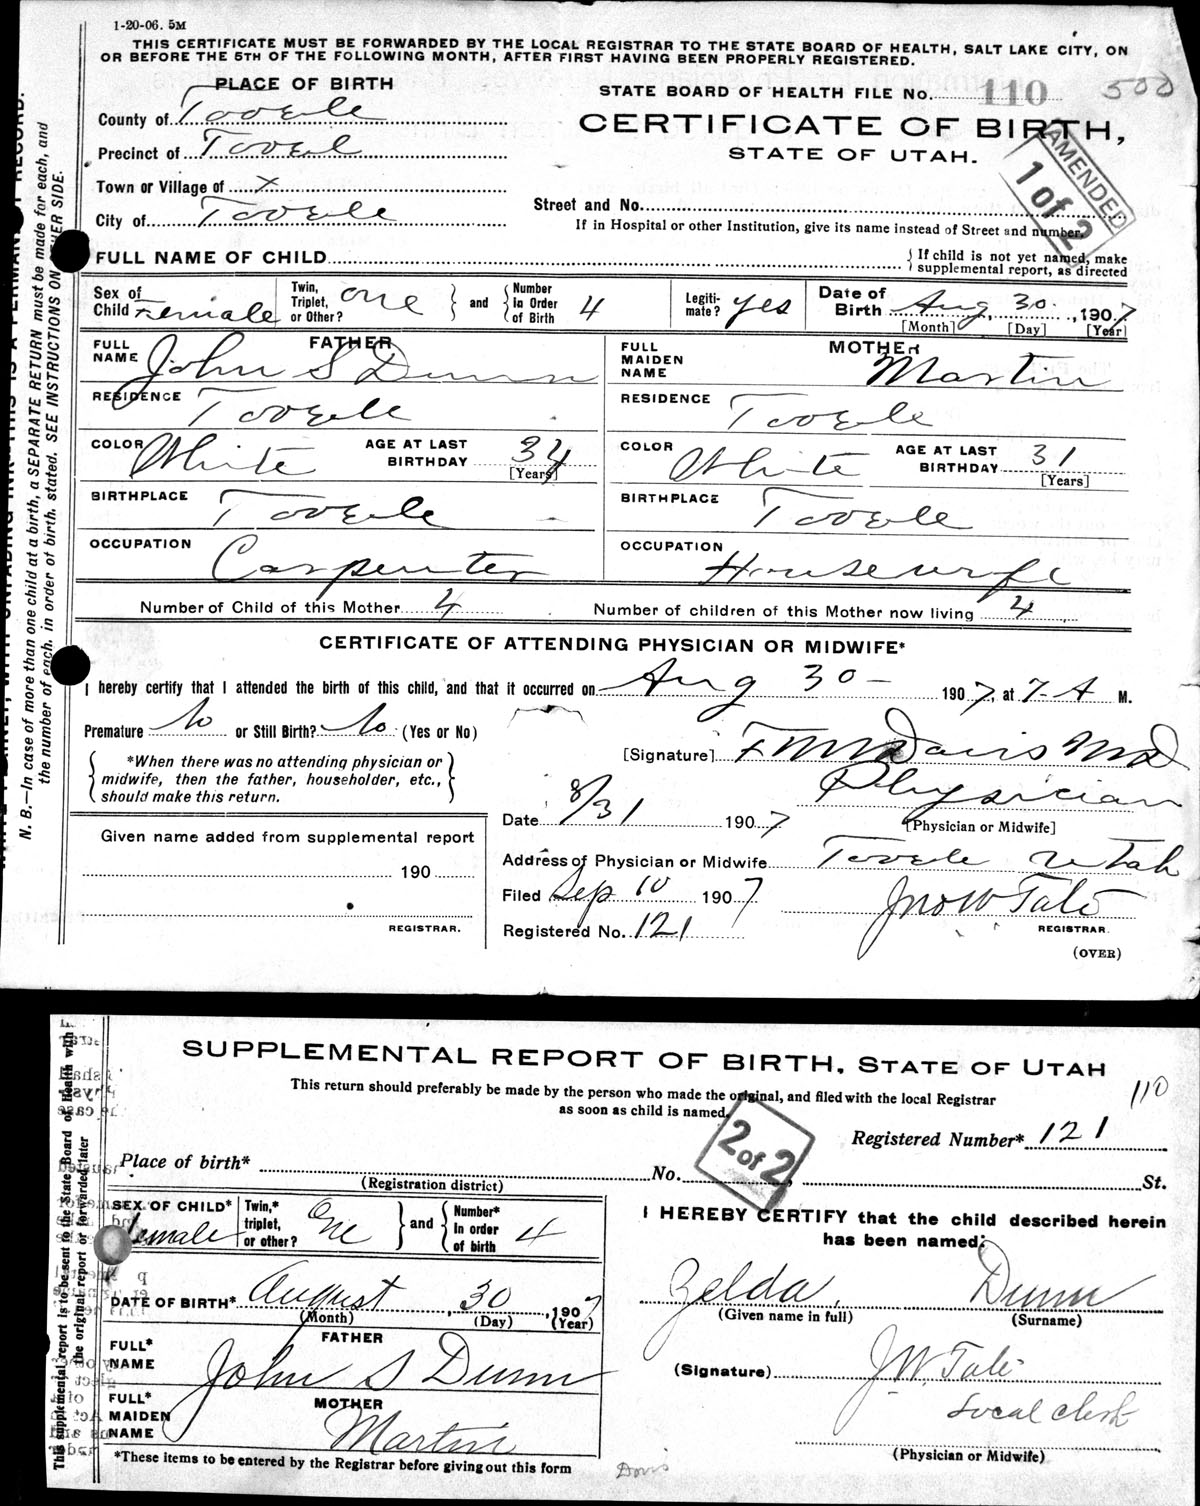 1-20-06. 5M
THIS CERTIFICATE MUST BE FORWARDED BY THE LOCAL REGISTRAR TO THE STATE BOARD OF HEALTH, SALT LAKE CITY, ON
OR BEFORE THE 5TH OF THE FOLLOWING MONTH, AFTER FIRST HAVING BEEN PROPERLY REGISTERED.
PLACE OF BIRTH
STATE BOARD OF HEALTH FILE No. 110 500
County of Tooele
CERTIFICATE OF BIRTH,
Precinct of Tooele
STATE OF UTAH.
AMENDED
1 of 2
Town or Village of x
Street and No.
City of Tooele
If in Hospital or other Institution, give its name instead of Street and number.
FULL NAME OF CHILD
If child is not yet named, make
supplemental report, as directed
Sex of Child Female
Twin, Triplet, or Other? one
and
Number in Order of Birth 4
Legitimate? yes
Date of Birth Aug, 30, 1907
[Month] [Day] [Year]
FATHER
FULL NAME John S Dunn
MOTHER
FULL MAIDEN NAME Martin
RESIDENCE Tooele
RESIDENCE Tooele
COLOR White
AGE AT LAST BIRTHDAY 34
[Years]
COLOR White
AGE AT LAST BIRTHDAY 31
[Years]
BIRTHPLACE Tooele
BIRTHPLACE Tooele
OCCUPATION Carpenter
OCCUPATION Housewife
Number of Child of this Mother 4
Number of children of this Mother now living 4
CERTIFICATE OF ATTENDING PHYSICIAN OR MIDWIFE*
I hereby certify that I attended the birth of this child, and that it occurred on Aug 30 - 1907, at 7-A M.
Premature No or Still Birth? No (Yes or No)
[Signature] F M Davis MD
*When there was no attending physician or
midwife, then the father, householder, etc.,
should make this return.
Physician
[Physician or Midwife]
Date 8/31 1907
Given name added from supplemental report
190
REGISTRAR.
Address of Physician or Midwife Tooele Utah
Filed Sep 10 1907
Jno W Tate
REGISTRAR.
Registered No. 121
(OVER)
N. B.—In case of more than one child at a birth, a SEPARATE RETURN must be made for each, and
the number of each, in order of birth, stated. SEE INSTRUCTIONS ON OTHER SIDE.
SUPPLEMENTAL REPORT OF BIRTH, STATE OF UTAH
This return should preferably be made by the person who made the original, and filed with the local Registrar
as soon as child is named.
110
2 of 2
Registered Number* 121
Place of birth* No. St.
(Registration district)
SEX OF CHILD* Female
Twin,* triplet, or other? One
and
Number* In order of birth 4
I HEREBY CERTIFY that the child described herein
has been named:
DATE OF BIRTH* August, 30, 1907
(Month) (Day) (Year)
Zelda, Dunn
(Given name in full) (Surname)
FATHER
FULL* NAME John S Dunn
(Signature) J.W. Tate
Local clerk
MOTHER
FULL* MAIDEN NAME Martin
(Physician or Midwife)
*These items to be entered by the Registrar before giving out this form
Davis
This supplemental report is to be sent to the State Board of Health with
the original report or forwarded later